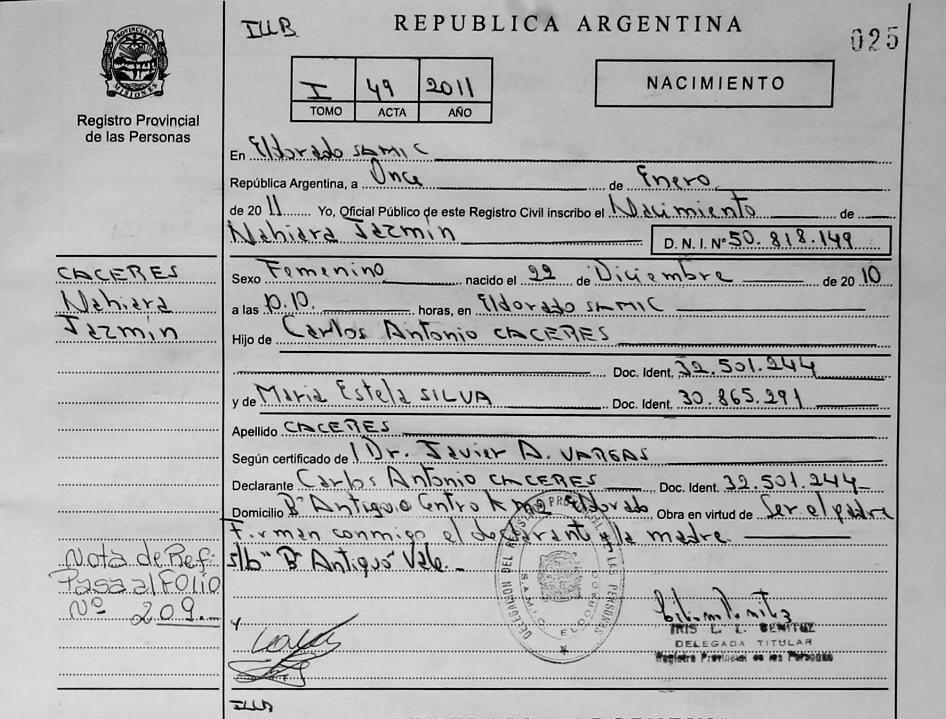 ILLB
REPUBLICA ARGENTINA
025
PROVINCIA DE MISIONES
Registro Provincial
de las Personas
I 49 2011
TOMO ACTA AÑO
NACIMIENTO
En Eldorado SAMIC
República Argentina, a Once de Enero
de 2011 Yo, Oficial Público de este Registro Civil inscribo el Nacimiento de
Nahiara Jazmín D.N.I. Nº 50.818.149
CACERES
Nahiara
Jazmín
Sexo Femenino nacido el 22 de Diciembre de 2010
a las 0.10. horas, en Eldorado SAMIC
Hijo de Carlos Antonio CACERES
Doc. Ident. 32.501.244
y de Maria Estela SILVA Doc. Ident. 30.865.291
Apellido CACERES
Según certificado de Dr. Javier A. VARGAS
Declarante Carlos Antonio CACERES Doc. Ident. 32.501.244
Domicilio Bº Antiguo Centro Eldorado Obra en virtud de Ser el padre
Firman conmigo el declarante y la madre.
s/b "Bº Antiguo Vale
Nota de Ref:
Pasa al FOLIO
Nº 209
DELEGACION DEL REGISTRO PROVINCIAL DE LAS PERSONAS
S.A.M.I.C. ELDORADO
IRIS L. L. BENITEZ
DELEGADA TITULAR
Registro Provincial de las Personas
ILLB
REPUBLICA ARGENTINA